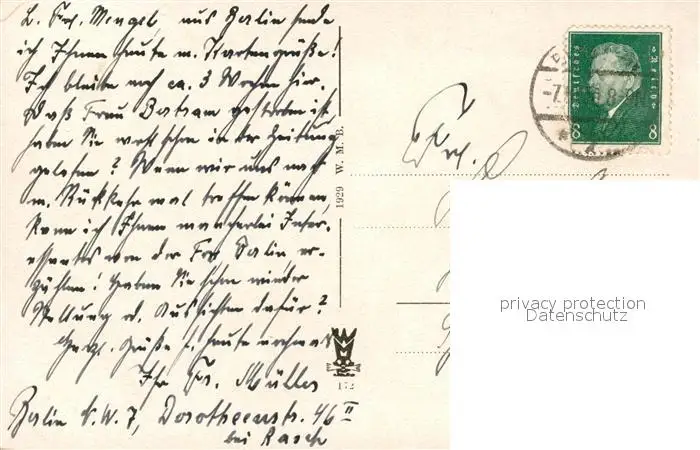 L. Frl. Mengel, aus Berlin sende
ich Ihnen heute m. Kartengrüße!
Ich bleibe noch ca. 3 Wochen hier.
Daß Frau Bertram gestorben ist
haben Sie wohl schon in der Zeitung
gelesen? Wenn wir uns nach
m. Rückkehr mal treffen können,
kann ich Ihnen mancherlei Inter-
essantes von der Berlin er-
zählen! Haben Sie schon wieder
Stellung od. Aussichten dafür?
Herzl. Grüße f. heute nochmals
Ihr Fr. Müller
Berlin N.W.7, Dorotheenstr. 46 II
bei Rasch
1929 W. M. B.
172
Frl.
Deutsches Reich
8 8
privacy protection
Datenschutz